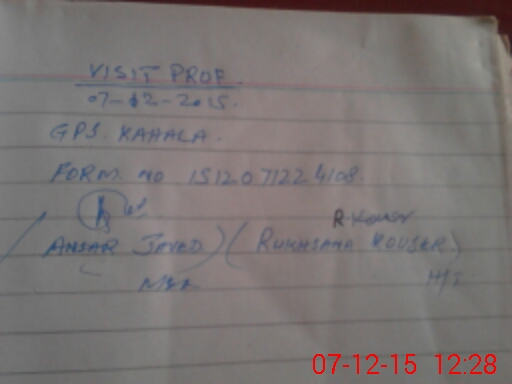 VISIT PROF
07-12-2015.
GPS. KAHALA.
FORM no 151207122 4108.
R. Kouser
ANSAR JAVED) (RUKHSANA KOUSER)
MEA H/T
07-12-15 12:28